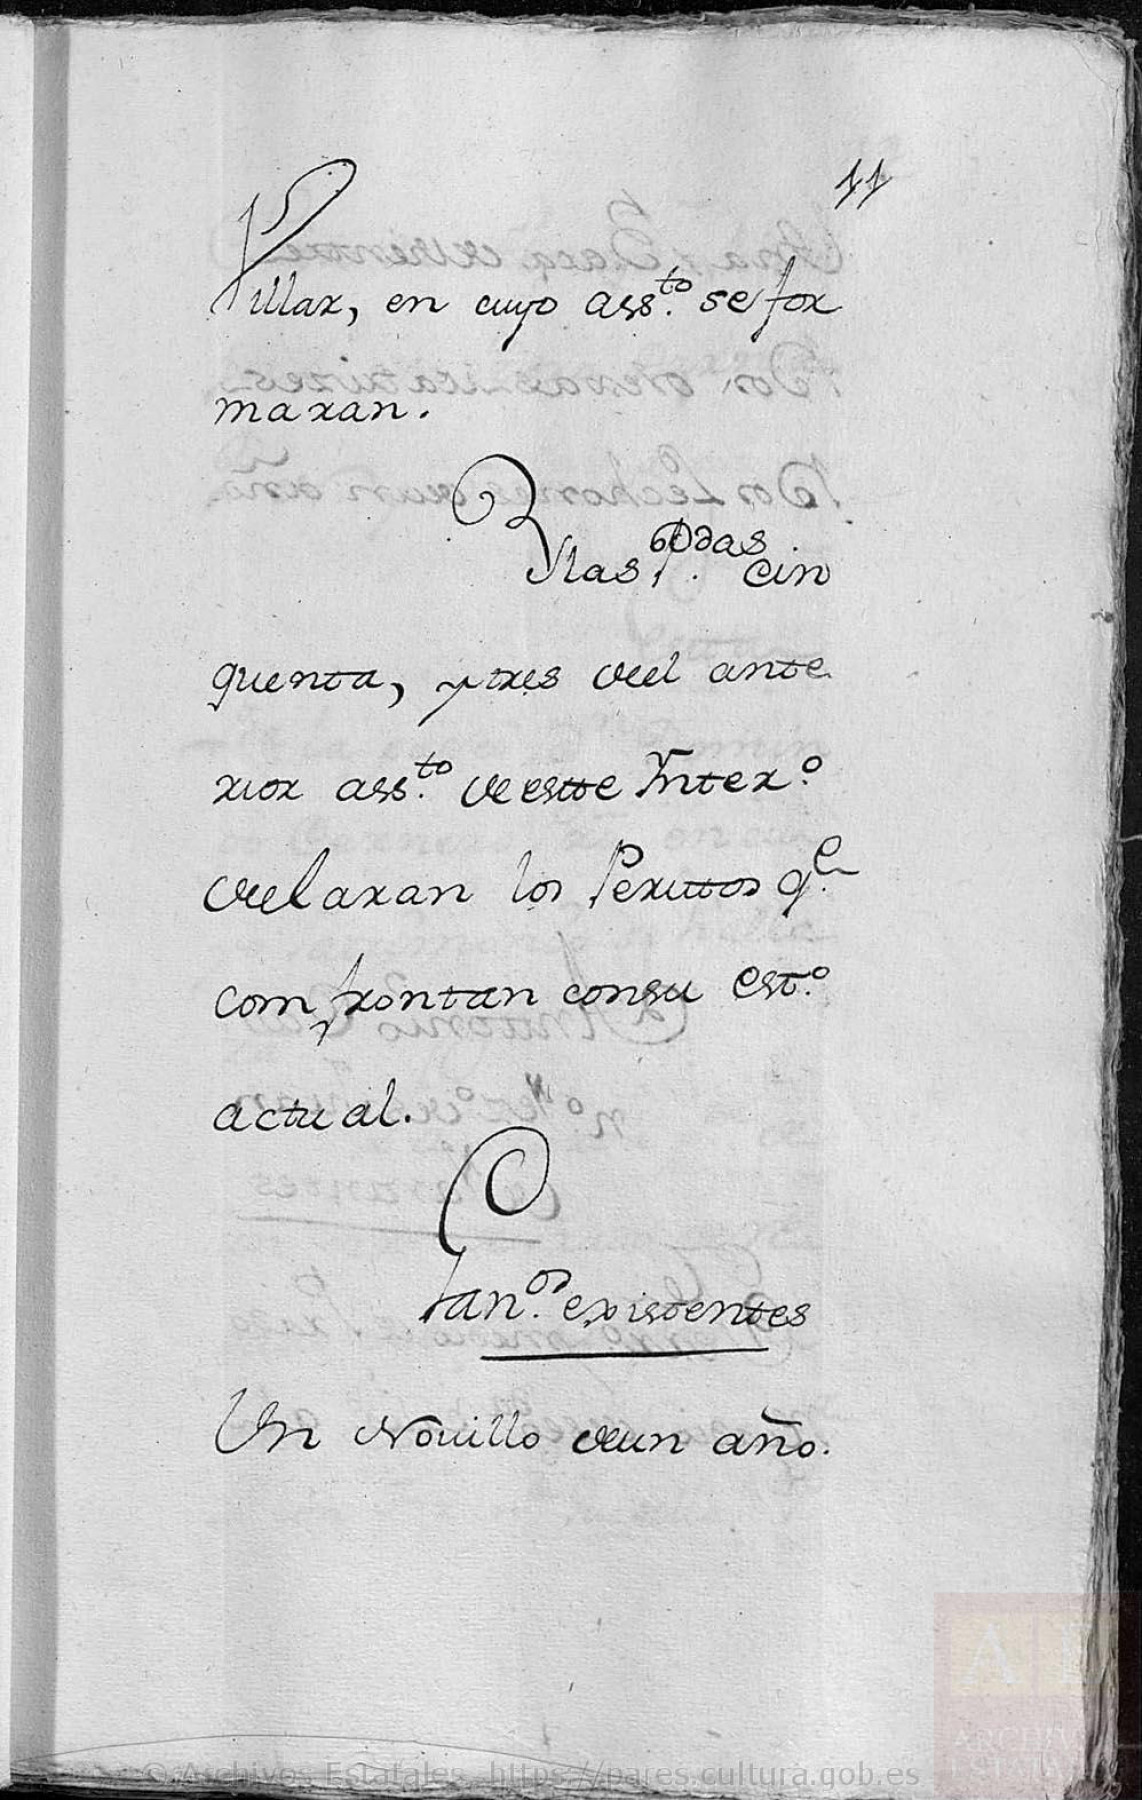 11
Villar, en cuyo ass.to se for
maran.
Ylas p.das cin
quenta, y tres del ante
rior ass.to de estte Ynter.o
delaran los Perittos q.e
comfrontan consu est.o
actual.
Gan.os existentes
Un Novillo deun año.
© Archivos Estatales, https://pares.cultura.gob.es